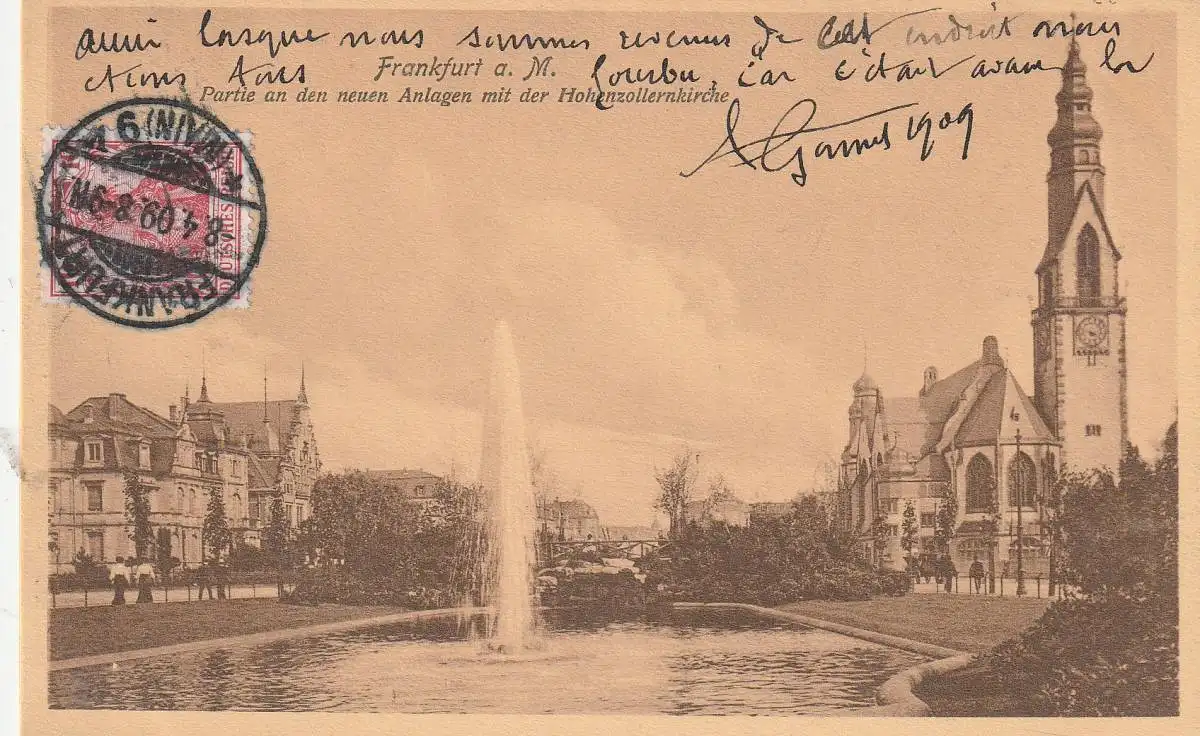 aussi lorsque nous sommes revenus de cet endroit nous
étions tous fourbu, car c'était avant la
1909
Frankfurt a. M.
Partie an den neuen Anlagen mit der Hohenzollernkirche
FRANKFURT (MAIN) 9
8.4.09.8-9N.
DEUTSCHES